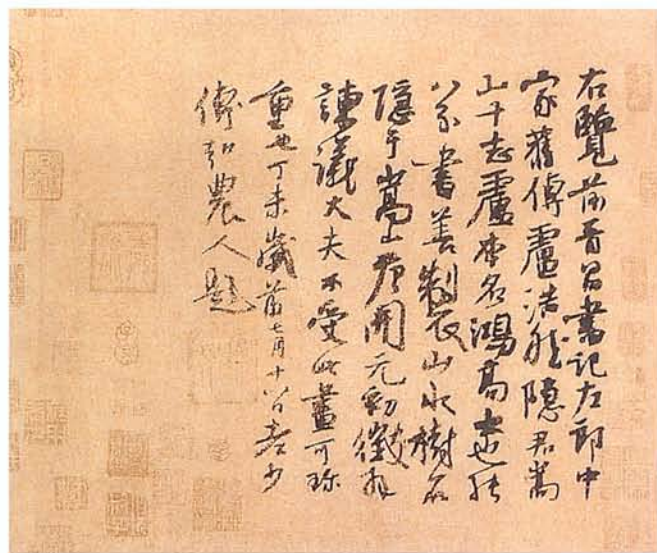 右覽前晋昌書記左郎中
家舊傳盧浩然隱居嵩
山十志盧本名鴻高士也能
八分書善製山水樹石
隱于嵩山唐開元初徵拜
諫議大夫不受此畫可珎
重也丁未歲前七月十八日老少
傅弘農人題